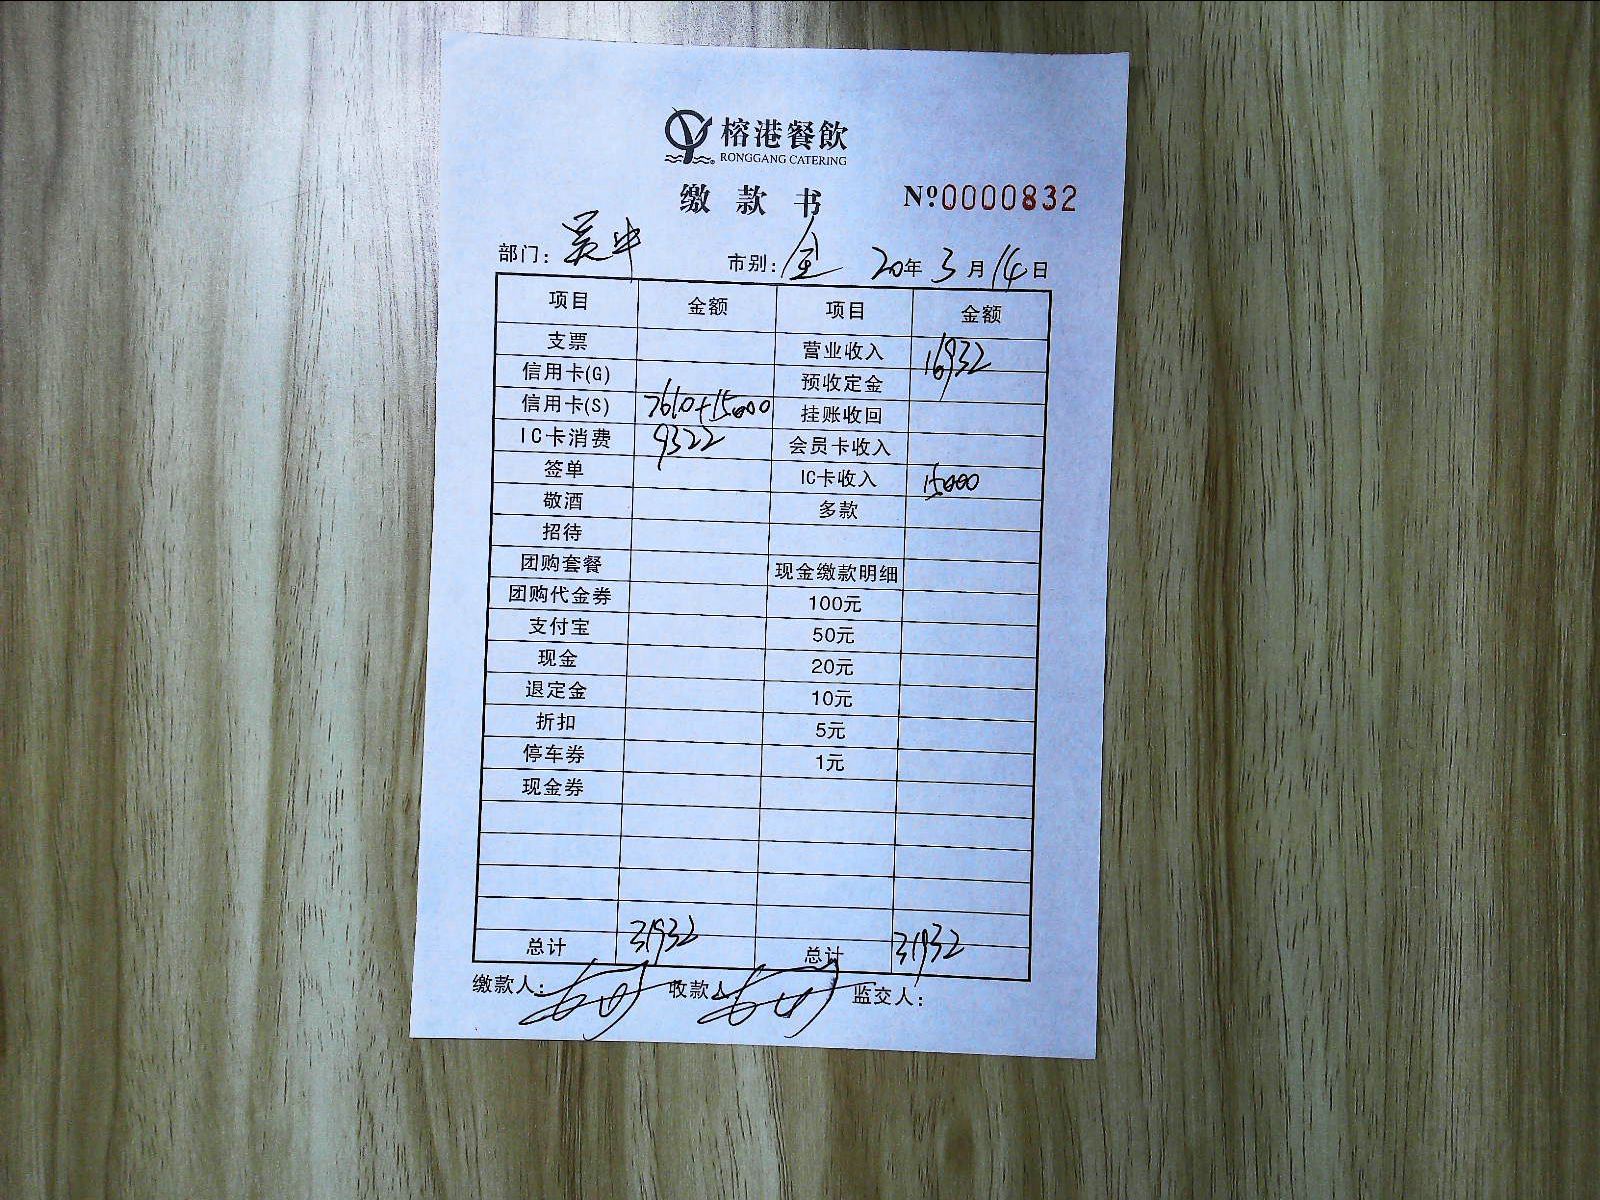 榕港餐飲
RONGGANG CATERING
缴款书 №0000832
部门：吴中 市别：全 20年3月14日
项目 金额 项目 金额
支票 营业收入 16932
信用卡(G) 预收定金
信用卡(S) 7610+15000 挂账收回
IC卡消费 9322 会员卡收入
签单 IC卡收入 15000
敬酒 多款
招待
团购套餐 现金缴款明细
团购代金券 100元
支付宝 50元
现金 20元
退定金 10元
折扣 5元
停车券 1元
现金券
总计 31932 总计 31932
缴款人： 收款人 监交人：